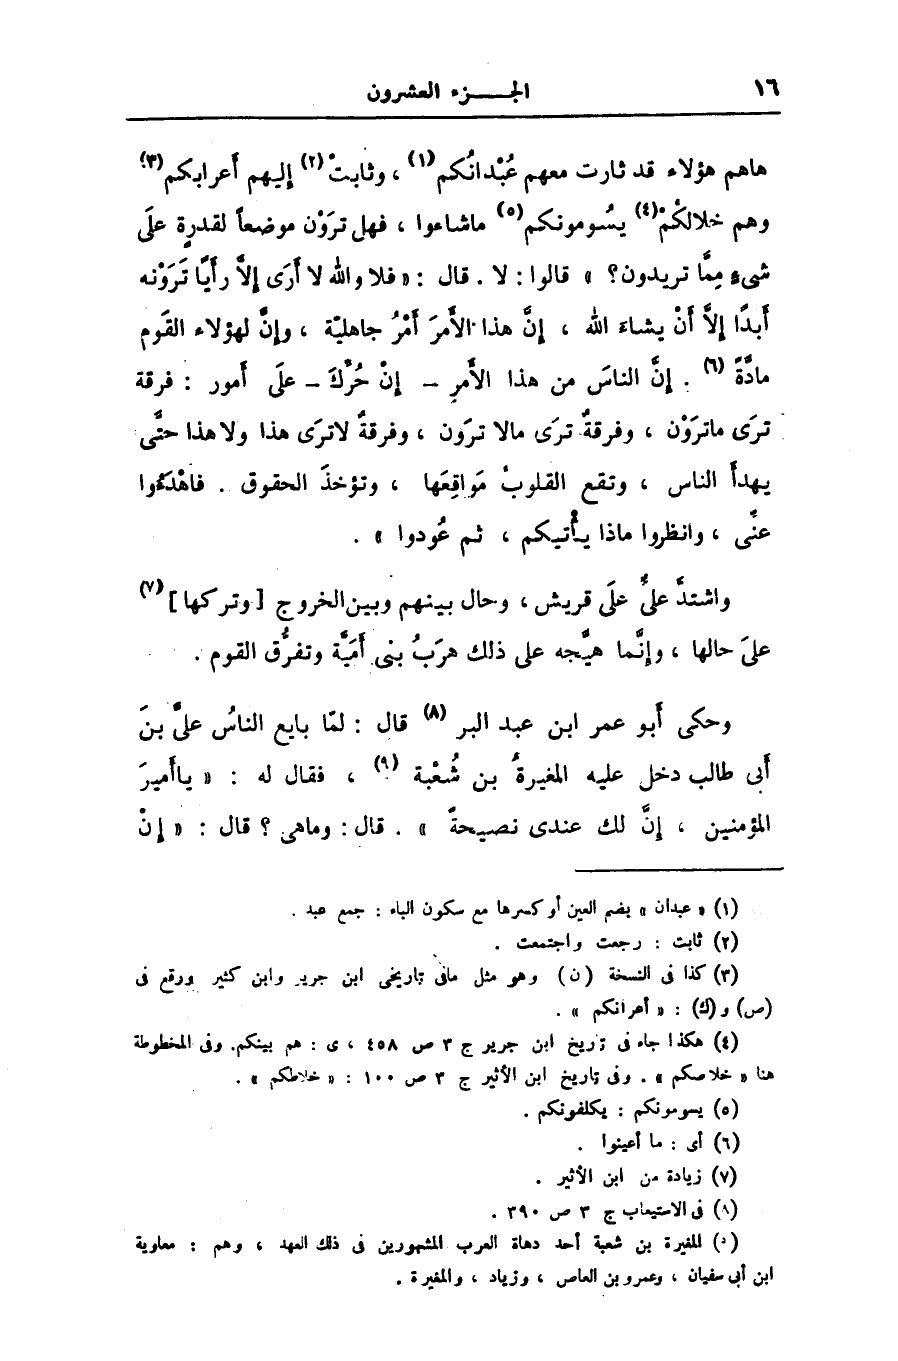 ١٦
الجـــزء العشرون
هاهم هؤلاء قد ثارت معهم عُبْدانُكم (١) ، وثابتْ (٢) إليهم أعرابكم (٣)
وهم خلالكُمْ (٤) يسُومونكم (٥) ماشاءوا ، فهل ترَوْن موضعاً لقدرةٍ علَى
شىءٍ مِمَّا تريدون؟ » قالوا : لا . قال : « فلا والله لا أرَى إلاَّ رأيًا تَرَوْنه
أبدًا إلاَّ أنْ يشاءَ الله ، إنَّ هذا الأمرَ أمْرُ جاهليّة ، وإنَّ لهؤلاء القَوم
مادَّةً (٦) . إنَّ الناسَ من هذا الأمرِ – إنْ حُرِّكَ – علَى أمور : فرقة
ترَى ماترَوْن ، وفرقةٌ ترَى مالا ترَون ، وفرقةٌ لاترَى هذا ولا هذا حتَّى
يهدأ الناس ، وتقع القلوبُ مَوَاقِعَها ، وتؤخذَ الحقوق . فاهْدَءُوا
عنِّى ، وانظروا ماذا يأْتيكم ، ثم عُودوا » .
واشتدَّ علىٌّ علَى قريش ، وحال بينهم وبين الخروج [ وتركها ] (٧)
علىَ حالها ، وإنَّما هيَّجه على ذلك هرَبُ بنى أمَيَّة وتفرُّق القوم .
وحكى أبو عمر ابن عبد البر (٨) قال : لمّا بايع الناسُ علىَّ بنَ
أبى طالب دخل عليه المغيرةُ بن شُعْبة (٩) ، فقال له : « ياأميرَ
المؤمنين ، إنَّ لك عندى نصيحةً » . قال : وماهى ؟ قال : « إنْ
(١) « عبدان » بضم العين أو كسرها مع سكون الباء : جمع عبد .
(٢) ثابت : رجعت واجتمعت .
(٣) كذا فى النسخة (ن) وهو مثل مافى تاريخى ابن جرير وابن كثير ووقع فى
(ص) و(ك) : « أعرانكم » .
(٤) هكذا جاء فى تاريخ ابن جرير ج ٣ ص ٤٥٨ ، ى : هم بينكم. وفى المخطوطة
هنا « خلاصكم » . وفى تاريخ ابن الأثير ج ٣ ص ١٠٠ : « خلاطكم » .
(٥) يسومونكم : يكلفونكم .
(٦) أى : ما أعينوا .
(٧) زيادة من ابن الأثير .
(٨) فى الاستيعاب ج ٣ ص ٣٩٠ .
(٩) المغيرة بن شعبة أحد دهاة العرب المشهورين فى ذلك العهد ، وهم : معاوية
ابن أبى سفيان ، وعمرو بن العاص ، وزياد ، والمغيرة .